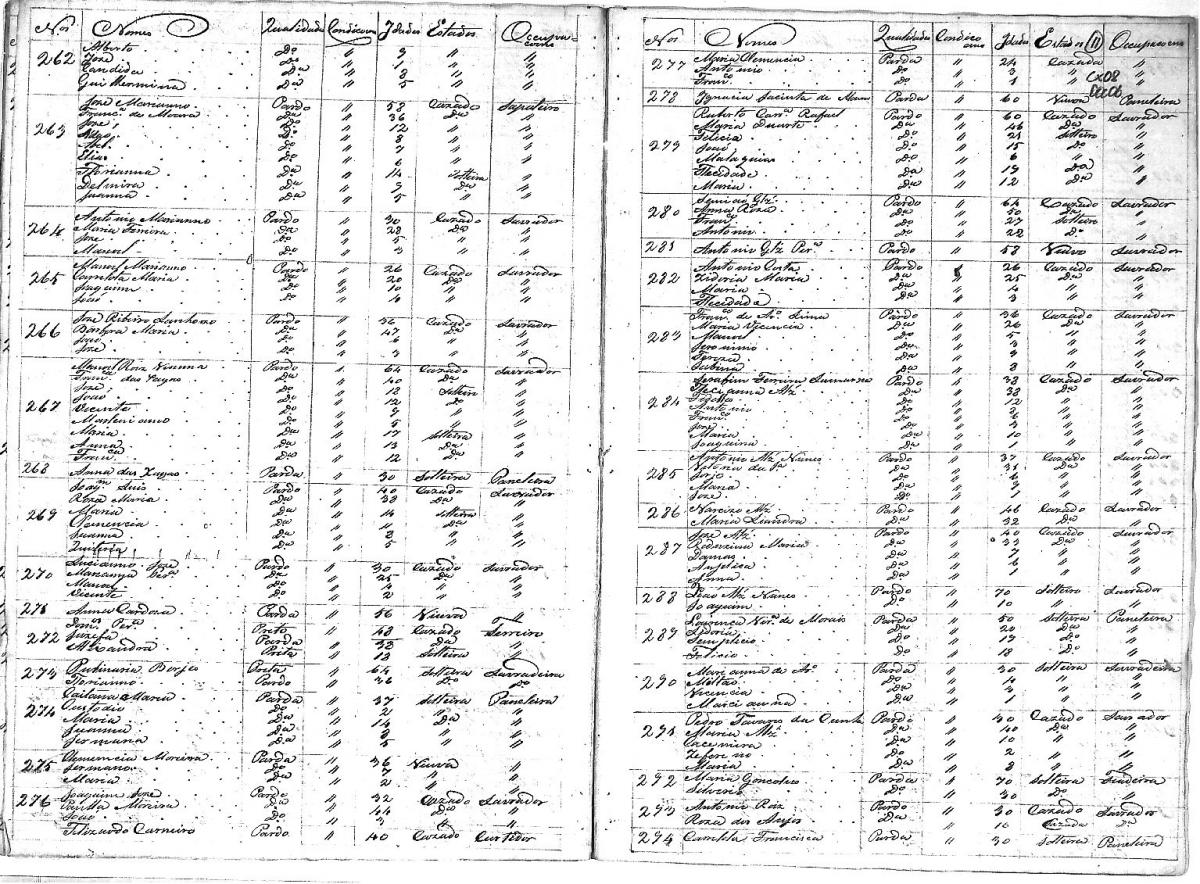 Nos Nomes Qualidades Condicoens Idades Estados Occupacoens
262 Alberto Do " 9 " "
José Do " 1 " "
Candida Da " 8 " "
Guilhermina Da " 5 " "
263 José Marianno Pardo " 58 Cazado Sapateiro
Franca de Moura Da " 36 Da "
José Do " 12 " "
Do " 8 " "
Do " 7 " "
Elias Do " 6 " "
Florianna Da " 14 Solteira "
Delmira Da " 9 Da "
Juanna Da " 5 " "
264 Antonio Marianno Pardo " 30 Cazado Lavrador
Maria Ferreira Da " 28 Da "
José Do " 5 " "
Manoel Do " 3 " "
265 Manoel Marianno Pardo " 26 Cazado Lavrador
Maria Da " 20 Da "
Joaquim Do " 10 " "
João Do " 4 " "
266 José Ribeiro Pardo " 36 Cazado Lavrador
Barbara Maria Da " 47 Da "
João Do " 6 " "
José Do " 3 " "
267 Manoel Roiz Vianna Pardo " 64 Cazado Lavrador
Franca das Chagas Da " 40 Da "
José Do " 18 Solteiro "
João Do " 12 Do "
Vicente Do " 9 " "
Do " 5 " "
Maria Da " 17 Solteira "
Anna Da " 13 Da "
Franca Da " 12 Da "
268 Anna das Parda " 30 Solteira Paneleira
269 Joaqm Luis Pardo " 40 Cazado Lavrador
Roza Maria Da " 38 Da "
Maria Da " 14 Solteira "
Clemencia Da " 11 Da "
Juanna Da " 8 " "
Quiteria Da " 5 " "
270 Lucianno José Pardo " 30 Cazado Lavrador
Marianna Da " 25 Da "
Manoel Do " 4 " "
Vicente Do " 2 " "
271 Anna Cardoza Parda " 56 Viuva "
272 Perа Preto " 48 Cazado Ferreiro
Juzefa Parda " 38 Da "
Alexandra Preta " 18 Solteira "
273 Borges Preta " 64 Solteira Lavradeira
Florianno Pardo " 36 Do Do
274 Caitana Maria Parda " 37 Solteira Paneleira
Custodio Do " 2 " "
Maria Da " 14 Da "
Da " 8 " "
Germana Da " 5 " "
275 Clemencia Moreira Parda " 36 Viuva "
Germano Do " 7 " "
Maria Da " 2 " "
276 Joaquim José Pardo " 32 Cazado Lavrador
Moreira Da " 44 Da "
João Do " 3 " "
Felizardo Carneiro Pardo " 40 Cazado Curtidor
Nos Nomes Qualidades Condicoens Idades Estados (11) Occupacoens
277 Maria Clemencia Parda " 24 Cazada "
Antonio Do " 3 " "
Franco Do " 1 " "
CX08
D006
278 Ignacia Jacinta de Parda " 60 Viuva Paneleira
279 Ruberto Rafael Pardo " 60 Cazado Lavrador
Maria Duarte Da " 46 Da "
Felicia Da " 21 Solteira "
José Do " 15 Do "
Malaquias Do " 6 " "
Flecidade Da " 19 Da "
Maria Da " 12 Da "
280 Ignacio Glz Pardo " 64 Cazado Lavrador
Anna Roza Da " 50 Da "
Franco Do " 27 Solteiro "
Antonio Do " 22 Do "
281 Antonio Glz Pera Pardo " 58 Viuvo Lavrador
282 Antonio Costa Pardo " 26 Cazado Lavrador
Zidoria Maria Da " 25 Da "
Maria Da " 4 " "
Flecidada Da " 3 " "
283 Franco de Ao Lima Pardo " 36 Cazado Lavrador
Maria Vicencia Da " 26 Da "
Manoel Do " 5 " "
Jeronimo Do " 3 " "
Tereza Da " 9 " "
Sabina Da " 8 " "
284 Serafim Ferreira Pardo " 38 Cazado Lavrador
Flecianna Mz Da " 38 Da "
Do " 12 " "
Antonio Do " 8 " "
Franco Do " 6 " "
José Do " 4 " "
Maria Da " 10 " "
Joaquina Da " 1 " "
285 Antonio Mz Nunes Pardo " 37 Cazado Lavrador
Vitoria da Pa Da " 31 Da "
Jorge Do " 6 " "
Maria Da " 3 " "
José Do " 1 " "
286 Narcizo Mz Pardo " 46 Cazado Lavrador
Maria Liandra Da " 32 Da "
287 José Mz Pardo " 40 Cazado Lavrador
Maria Da " 33 Da "
Damaz Do " 7 " "
Angelica Da " 6 " "
Anna Da " 1 " "
288 João Mz Nunes Pardo " 70 Solteiro Lavrador
Joaquim Do " 10 " "
289 Lourença de Morais Parda " 50 Solteira Paneleira
Izidoria Da " 20 Da "
Simplicio Do " 19 Do "
Felicio Do " 18 Do "
290 Marianna de Ao Parda " 30 Solteira Lavradeira
Militão Do " 4 " "
Vicencia Da " 3 " "
Marcianna Da " 1 " "
291 Pedro Tavares da Cunha Pardo " 40 Cazado Lavrador
Maria Mz Da " 40 Da "
Cacemira Da " 10 " "
Zeferino Do " 2 " "
Maria Da " 8 " "
292 Maria Goncalves Parda " 70 Solteira Fiadeira
Silverio Do " 30 Do "
293 Antonio Roiz Pardo " 30 Cazado Lavrador
Roza dos Anjos Da " 16 Cazada Da
294 Camilla Francisca Parda " 30 Solteira Paneleira